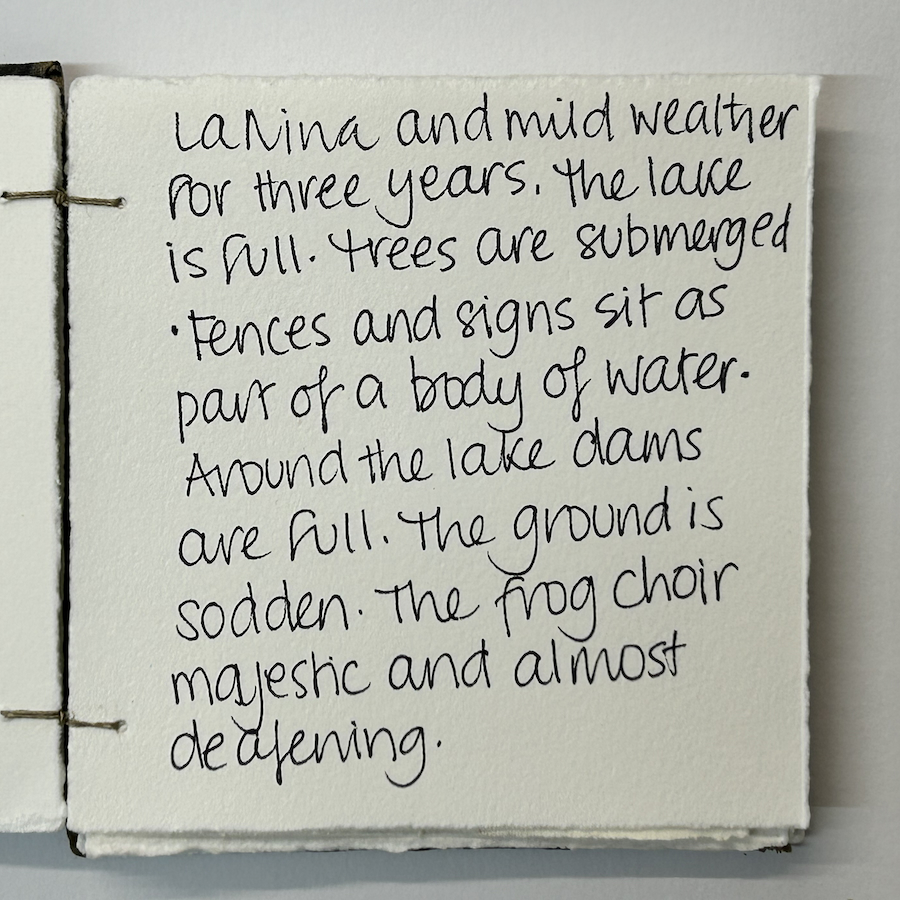 La Nina and mild wealther
for three years. The lake
is full. Trees are submerged
. Fences and signs sit as
part of a body of water.
Around the lake dams
are full. The ground is
sodden. The frog choir
majestic and almost
deafening.